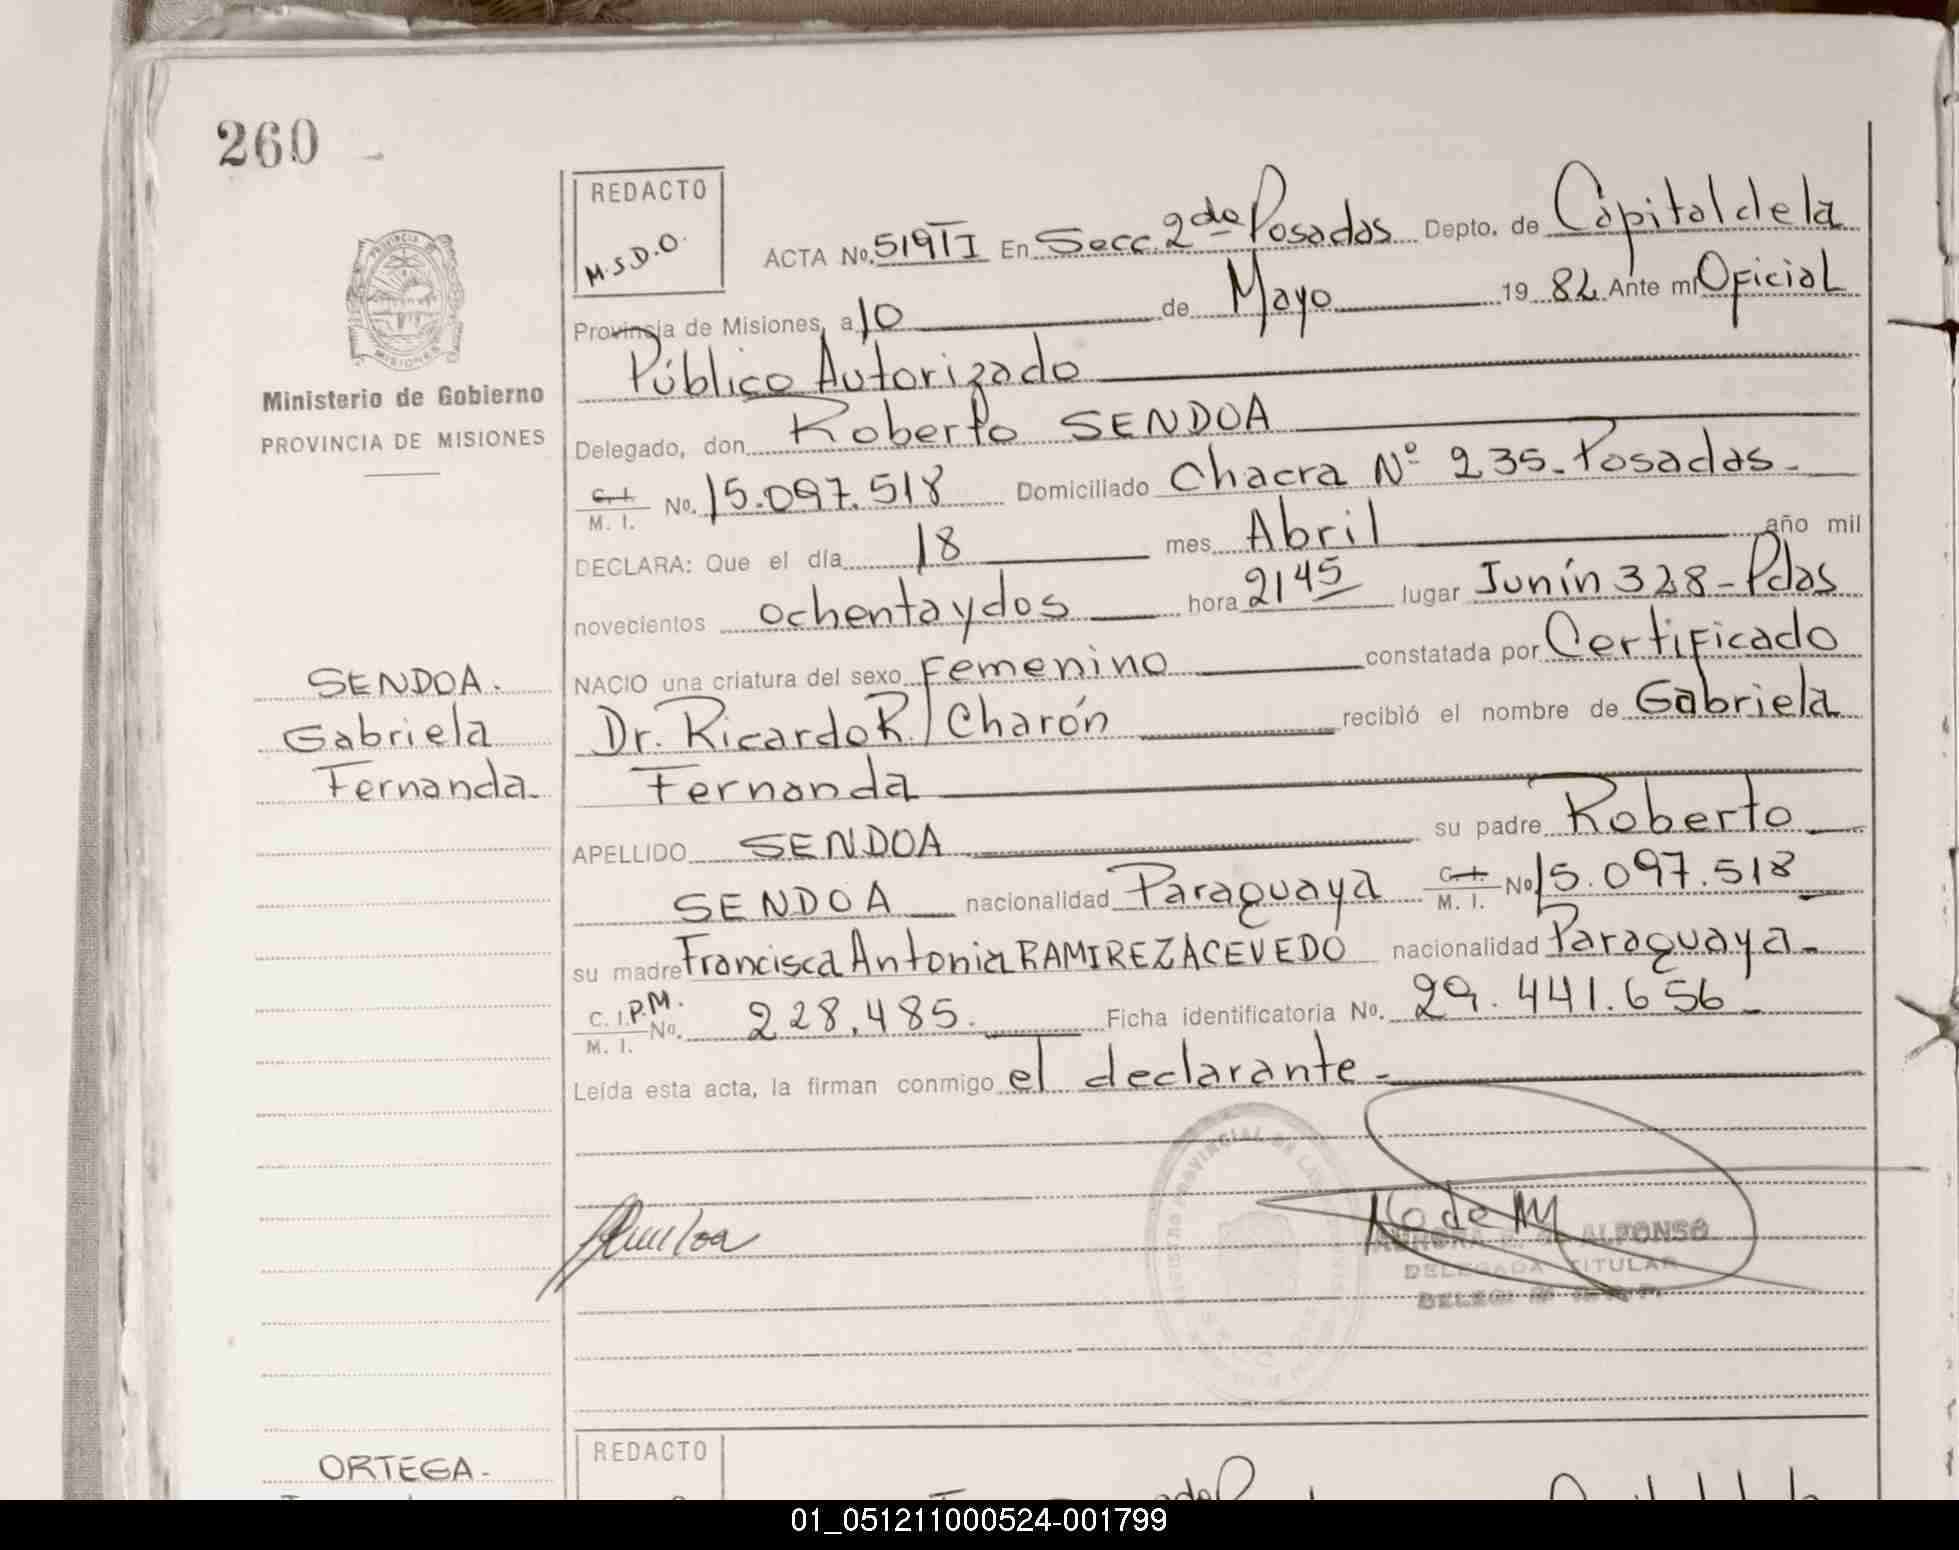 260
REDACTO
M.S.D.O.
ACTA No. 519 TI En Secc. 2da Posadas Depto. de Capital de la
Provincia de Misiones, a 10 de Mayo 19 82 Ante mi Oficial
Público Autorizado
Ministerio de Gobierno
PROVINCIA DE MISIONES
Delegado, don Roberto SENDOA
C. I. M. I. No. 15.097.518 Domiciliado Chacra Nº 235-Posadas-
DECLARA: Que el día 18 mes Abril año mil
novecientos ochenta y dos hora 2145 lugar Junín 328-Pdas
NACIO una criatura del sexo Femenino constatada por Certificado
Dr. Ricardo R. Charón recibió el nombre de Gabriela
Fernanda
SENDOA.
Gabriela
Fernanda-
APELLIDO SENDOA su padre Roberto
SENDOA nacionalidad Paraguaya C. I. M. I. No 15.097.518
su madre Francisca Antonia RAMIREZ ACEVEDO nacionalidad Paraguaya-
C. I. P.M. M. I. No. 228.485. Ficha identificatoria No. 29.441.656-
Leída esta acta, la firman conmigo el declarante-
ALFONSO
DELEGADA TITULAR
ORTEGA-
REDACTO
01_051211000524-001799